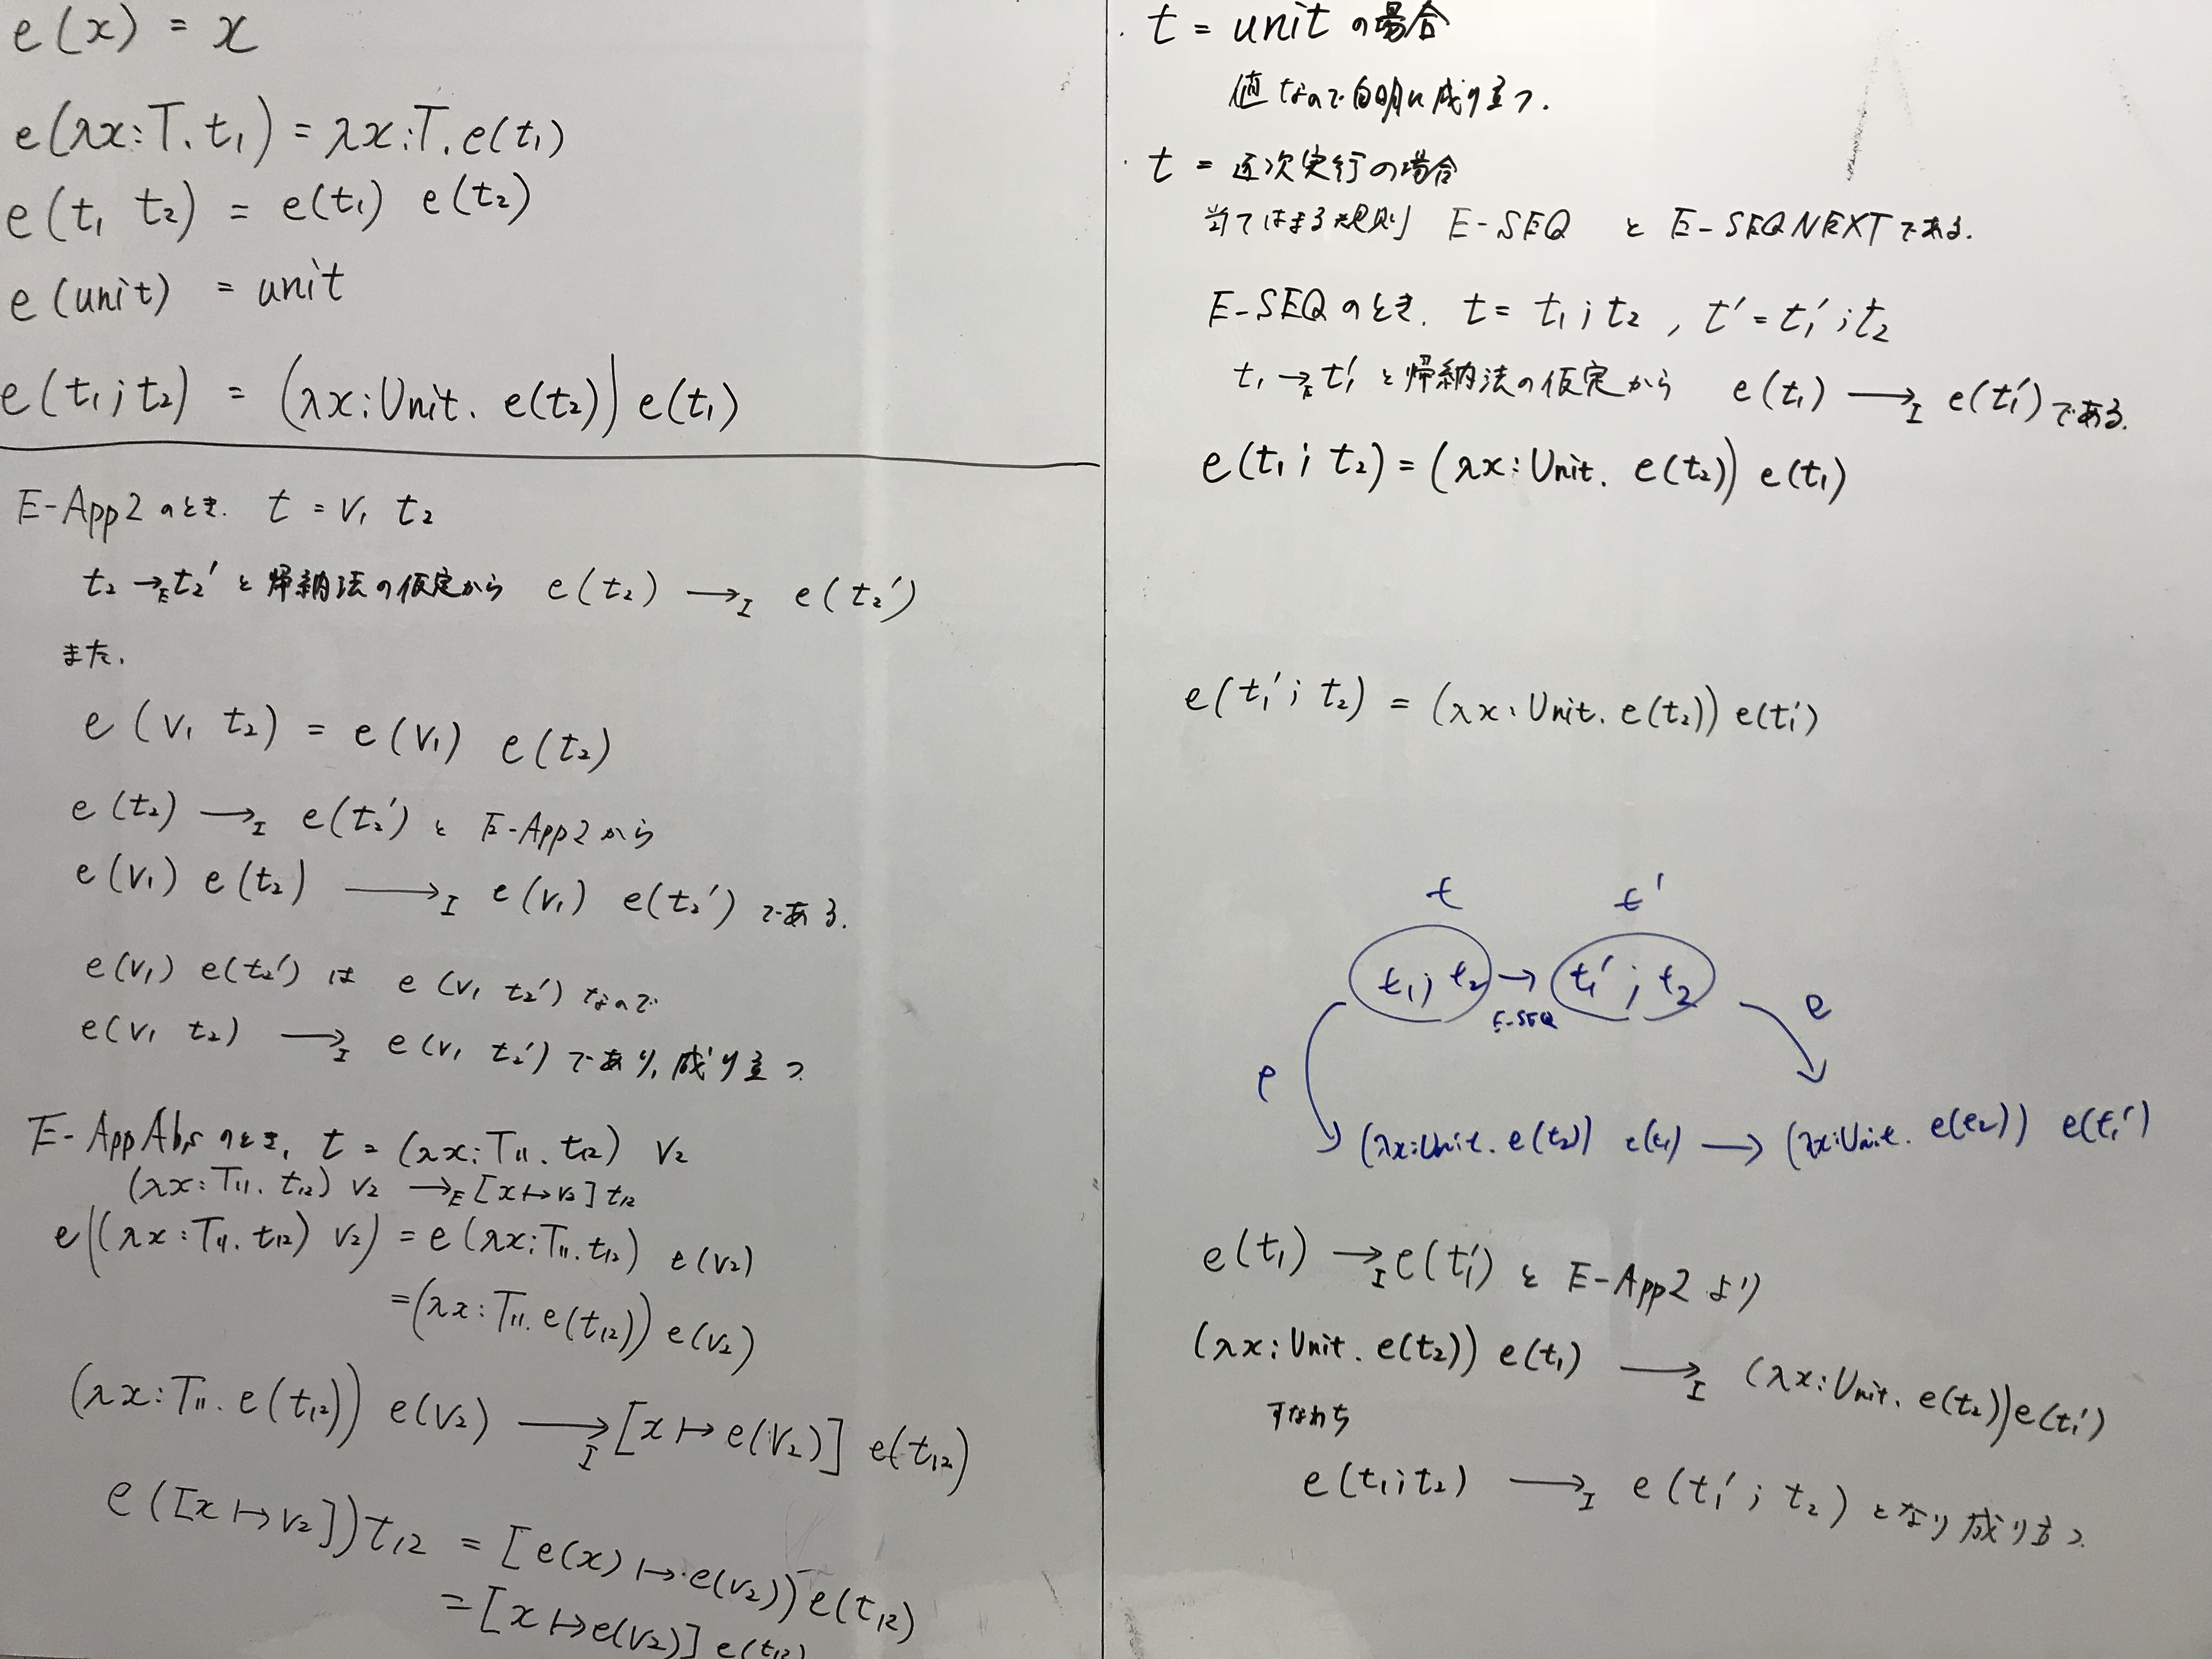 e(x) = x
e(λx:T. t₁) = λx:T. e(t₁)
e(t₁ t₂) = e(t₁) e(t₂)
e(unit) = unit
e(t₁;t₂) = (λx:Unit. e(t₂)) e(t₁)
E-App2のとき. t = v₁ t₂
t₂ →E t₂' と帰納法の仮定から e(t₂) →I e(t₂')
また.
e(v₁ t₂) = e(v₁) e(t₂)
e(t₂) →I e(t₂') と E-App2から
e(v₁) e(t₂) →I e(v₁) e(t₂') である.
e(v₁) e(t₂') は e(v₁ t₂') なので
e(v₁ t₂) →I e(v₁ t₂') であり, 成り立つ
E-AppAbsのとき, t = (λx:T₁₁. t₁₂) v₂
(λx:T₁₁. t₁₂) v₂ →E [x↦v₂] t₁₂
e((λx:T₁₁. t₁₂) v₂) = e(λx:T₁₁. t₁₂) e(v₂)
=(λx:T₁₁. e(t₁₂)) e(v₂)
(λx:T₁₁. e(t₁₂)) e(v₂) →I [x↦e(v₂)] e(t₁₂)
e([x↦v₂])t₁₂ = [e(x)↦e(v₂)) e(t₁₂)
=[x↦e(v₂)] e(t₁₂)
・ t = unit の場合
値なので自明に成り立つ.
・ t = 逐次実行の場合
当てはまる規則 E-SEQ と E-SEQNEXTである.
E-SEQのとき. t = t₁;t₂ , t' = t₁';t₂
t₁ →E t₁' と帰納法の仮定から e(t₁) →I e(t₁') である.
e(t₁; t₂) = (λx:Unit. e(t₂)) e(t₁)
e(t₁'; t₂) = (λx:Unit. e(t₂)) e(t₁')
t t'
t₁; t₂ → t₁'; t₂
E-SEQ
e e
(λx:Unit. e(t₂)) e(t₁) → (λx:Unit. e(t₂)) e(t₁')
e(t₁) →I e(t₁') と E-App2 より
(λx:Unit. e(t₂)) e(t₁) →I (λx:Unit. e(t₂)) e(t₁')
すなわち
e(t₁;t₂) →I e(t₁'; t₂) となり成り立つ